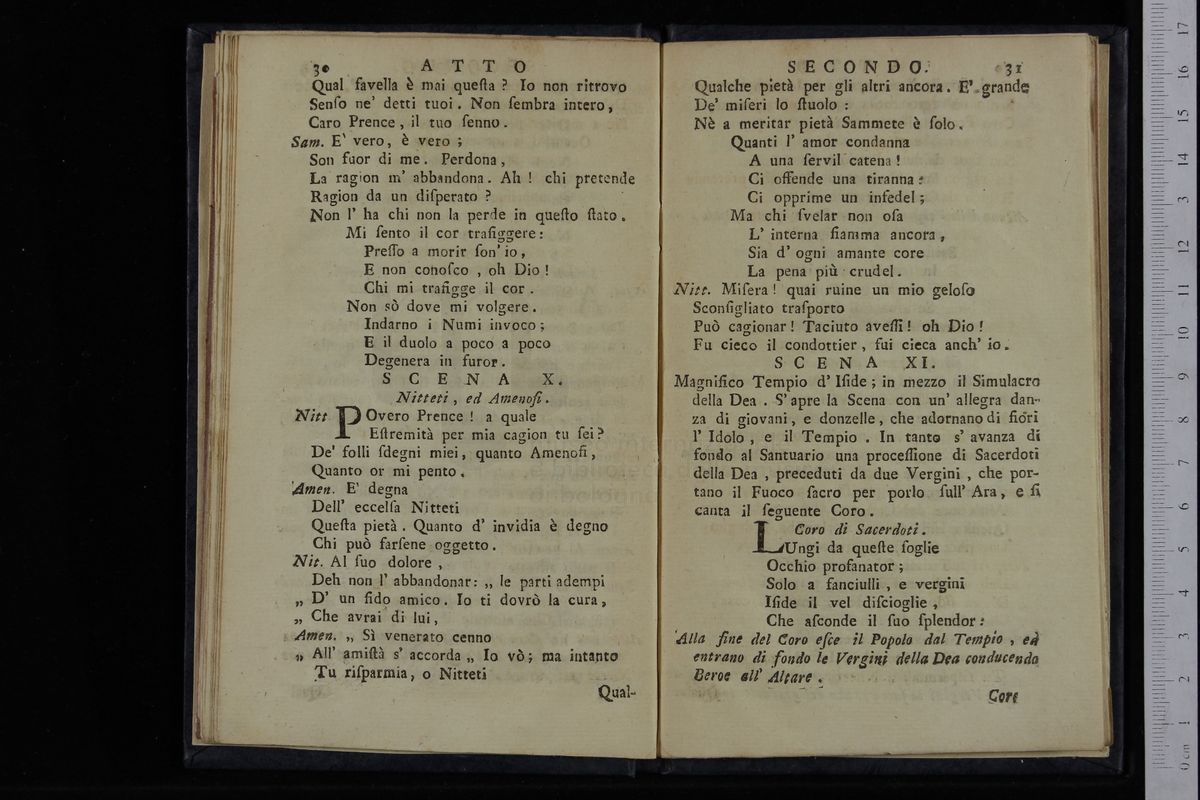 30 A T T O
Qual favella è mai queſta ? Io non ritrovo
Senſo ne' detti tuoi. Non ſembra intero,
Caro Prence, il tuo ſenno.
Sam. E' vero, è vero ;
Son fuor di me. Perdona,
La ragion m' abbandona. Ah ! chi pretende
Ragion da un diſperato ?
Non l' ha chi non la perde in queſto ſtato.
Mi ſento il cor trafiggere :
Preſſo a morir ſon' io,
E non conoſco, oh Dio !
Chi mi trafigge il cor.
Non sò dove mi volgere.
Indarno i Numi invoco ;
E il duolo a poco a poco
Degenera in furor.
S C E N A X.
Nitteti, ed Amenoſi.
Nitt POvero Prence ! a quale
Eſtremità per mia cagion tu ſei ?
De' folli ſdegni miei, quanto Amenoſi,
Quanto or mi pento.
Amen. E' degna
Dell' eccelſa Nitteti
Queſta pietà. Quanto d' invidia è degno
Chi può farſene oggetto.
Nit. Al ſuo dolore,
Deh non l' abbandonar : „ le parti adempi
„ D' un fido amico. Io ti dovrò la cura,
„ Che avrai di lui,
Amen. „ Sì venerato cenno
„ All' amiſtà s' accorda „ Io vò; ma intanto
Tu riſparmia, o Nitteti
Qual-
SECONDO. 31
Qualche pietà per gli altri ancora. E' grande
De' miſeri lo ſtuolo :
Nè a meritar pietà Sammete è ſolo.
Quanti l' amor condanna
A una ſervil catena !
Ci offende una tiranna :
Ci opprime un infedel ;
Ma chi ſvelar non oſa
L' interna fiamma ancora,
Sia d' ogni amante core
La pena più crudel.
Nitt. Miſera ! quai ruine un mio geloſo
Sconſigliato traſporto
Può cagionar ! Taciuto aveſſi ! oh Dio !
Fu cieco il condottier, fui cieca anch' io.
S C E N A XI.
Magnifico Tempio d' Iſide ; in mezzo il Simulacro
della Dea. S' apre la Scena con un' allegra dan-
za di giovani, e donzelle, che adornano di fiori
l' Idolo, e il Tempio. In tanto s' avanza di
fondo al Santuario una proceſſione di Sacerdoti
della Dea, preceduti da due Vergini, che por-
tano il Fuoco ſacro per porlo ſull' Ara, e ſi
canta il ſeguente Coro.
Coro di Sacerdoti.
LUngi da queſte ſoglie
Occhio profanator ;
Solo a fanciulli, e vergini
Iſide il vel diſcioglie,
Che aſconde il ſuo ſplendor :
Alla fine del Coro eſce il Popolo dal Tempio, ed
entrano di fondo le Vergini della Dea conducendo
Beroe all' Altare.
Core
0 cm 1 2 3 4 5 6 7 8 9 10 11 12 13 14 15 16 17